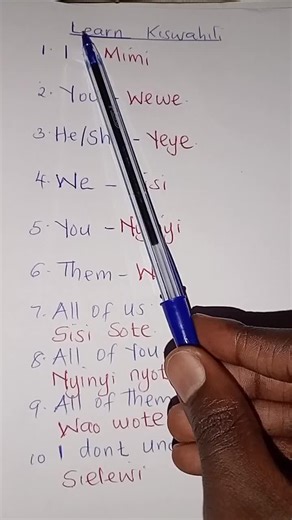 Learn Kiswahili
1. I Mimi
2. You - Wewe.
3. He/Sh - Yeye.
4. We -
5. You -
6. Them -
7. All of us
Sisi Sote.
8. All of You
Nyinyi
9. All of Them
Wao wote
10 I dont
Sielewi